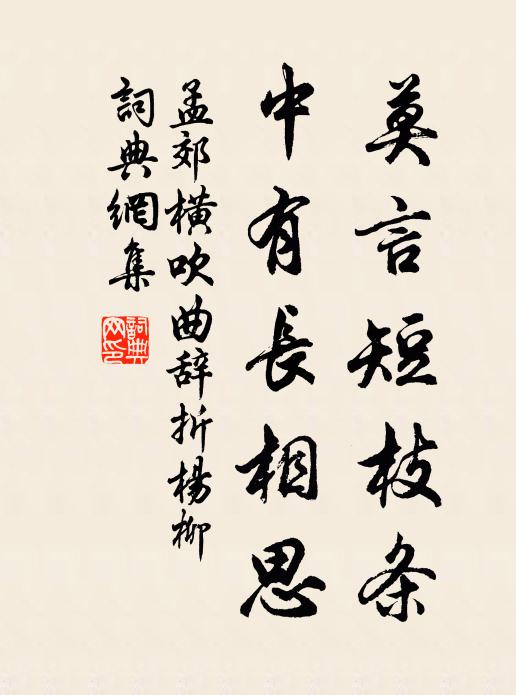 莫言短枝条
中有長相思
孟郊橫吹曲辞折楊柳
詞典網集
詞典
网印